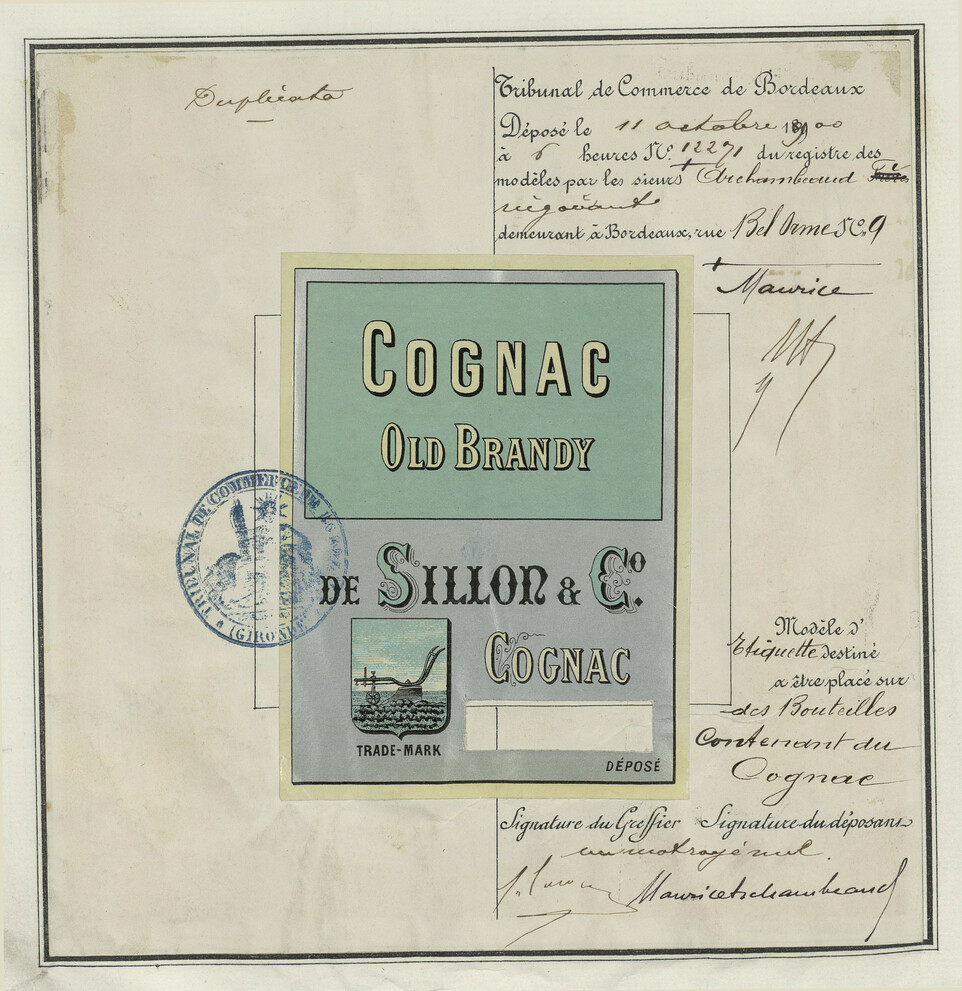 Duplicata
Tribunal de Commerce de Bordeaux
Déposé le 11 octobre 1900
à 6 heures No. 12271 du registre des
modèles par les sieurs Archambeaud
négociant
demeurant à Bordeaux, rue Bel Orme No. 9
Maurice
COGNAC
OLD BRANDY
DE SILLON & Co.
COGNAC
TRADE-MARK
DÉPOSÉ
TRIBUNAL DE COMMERCE DE
(GIRONDE)
Modèle d'
Etiquette destiné
a être placé sur
des Bouteilles
Contenant du
Cognac
Signature du Greffier Signature du déposant
un mot rayé nul.
Maurice Archambeaud